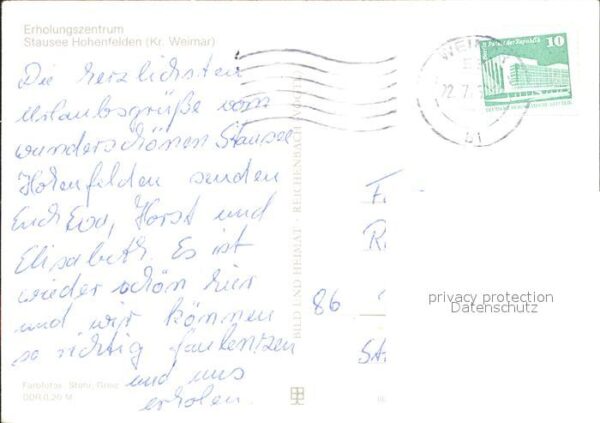 Erholungszentrum
Stausee Hohenfelden (Kr. Weimar)
Die herzlichsten
Urlaubsgrüße vom
wunderschönen Stausee
Hohenfelden senden
Euch Eva, Horst und
Elisabeth. Es ist
wieder schön hier
und wir können
so richtig faulenzen
und uns
erholen.
Farbfotos: Stöhr, Greiz
DDR 0,20 M
BILD UND HEIMAT · REICHENBACH
WEIM
22.7.
10
Palast der Republik
86
privacy protection
Datenschutz